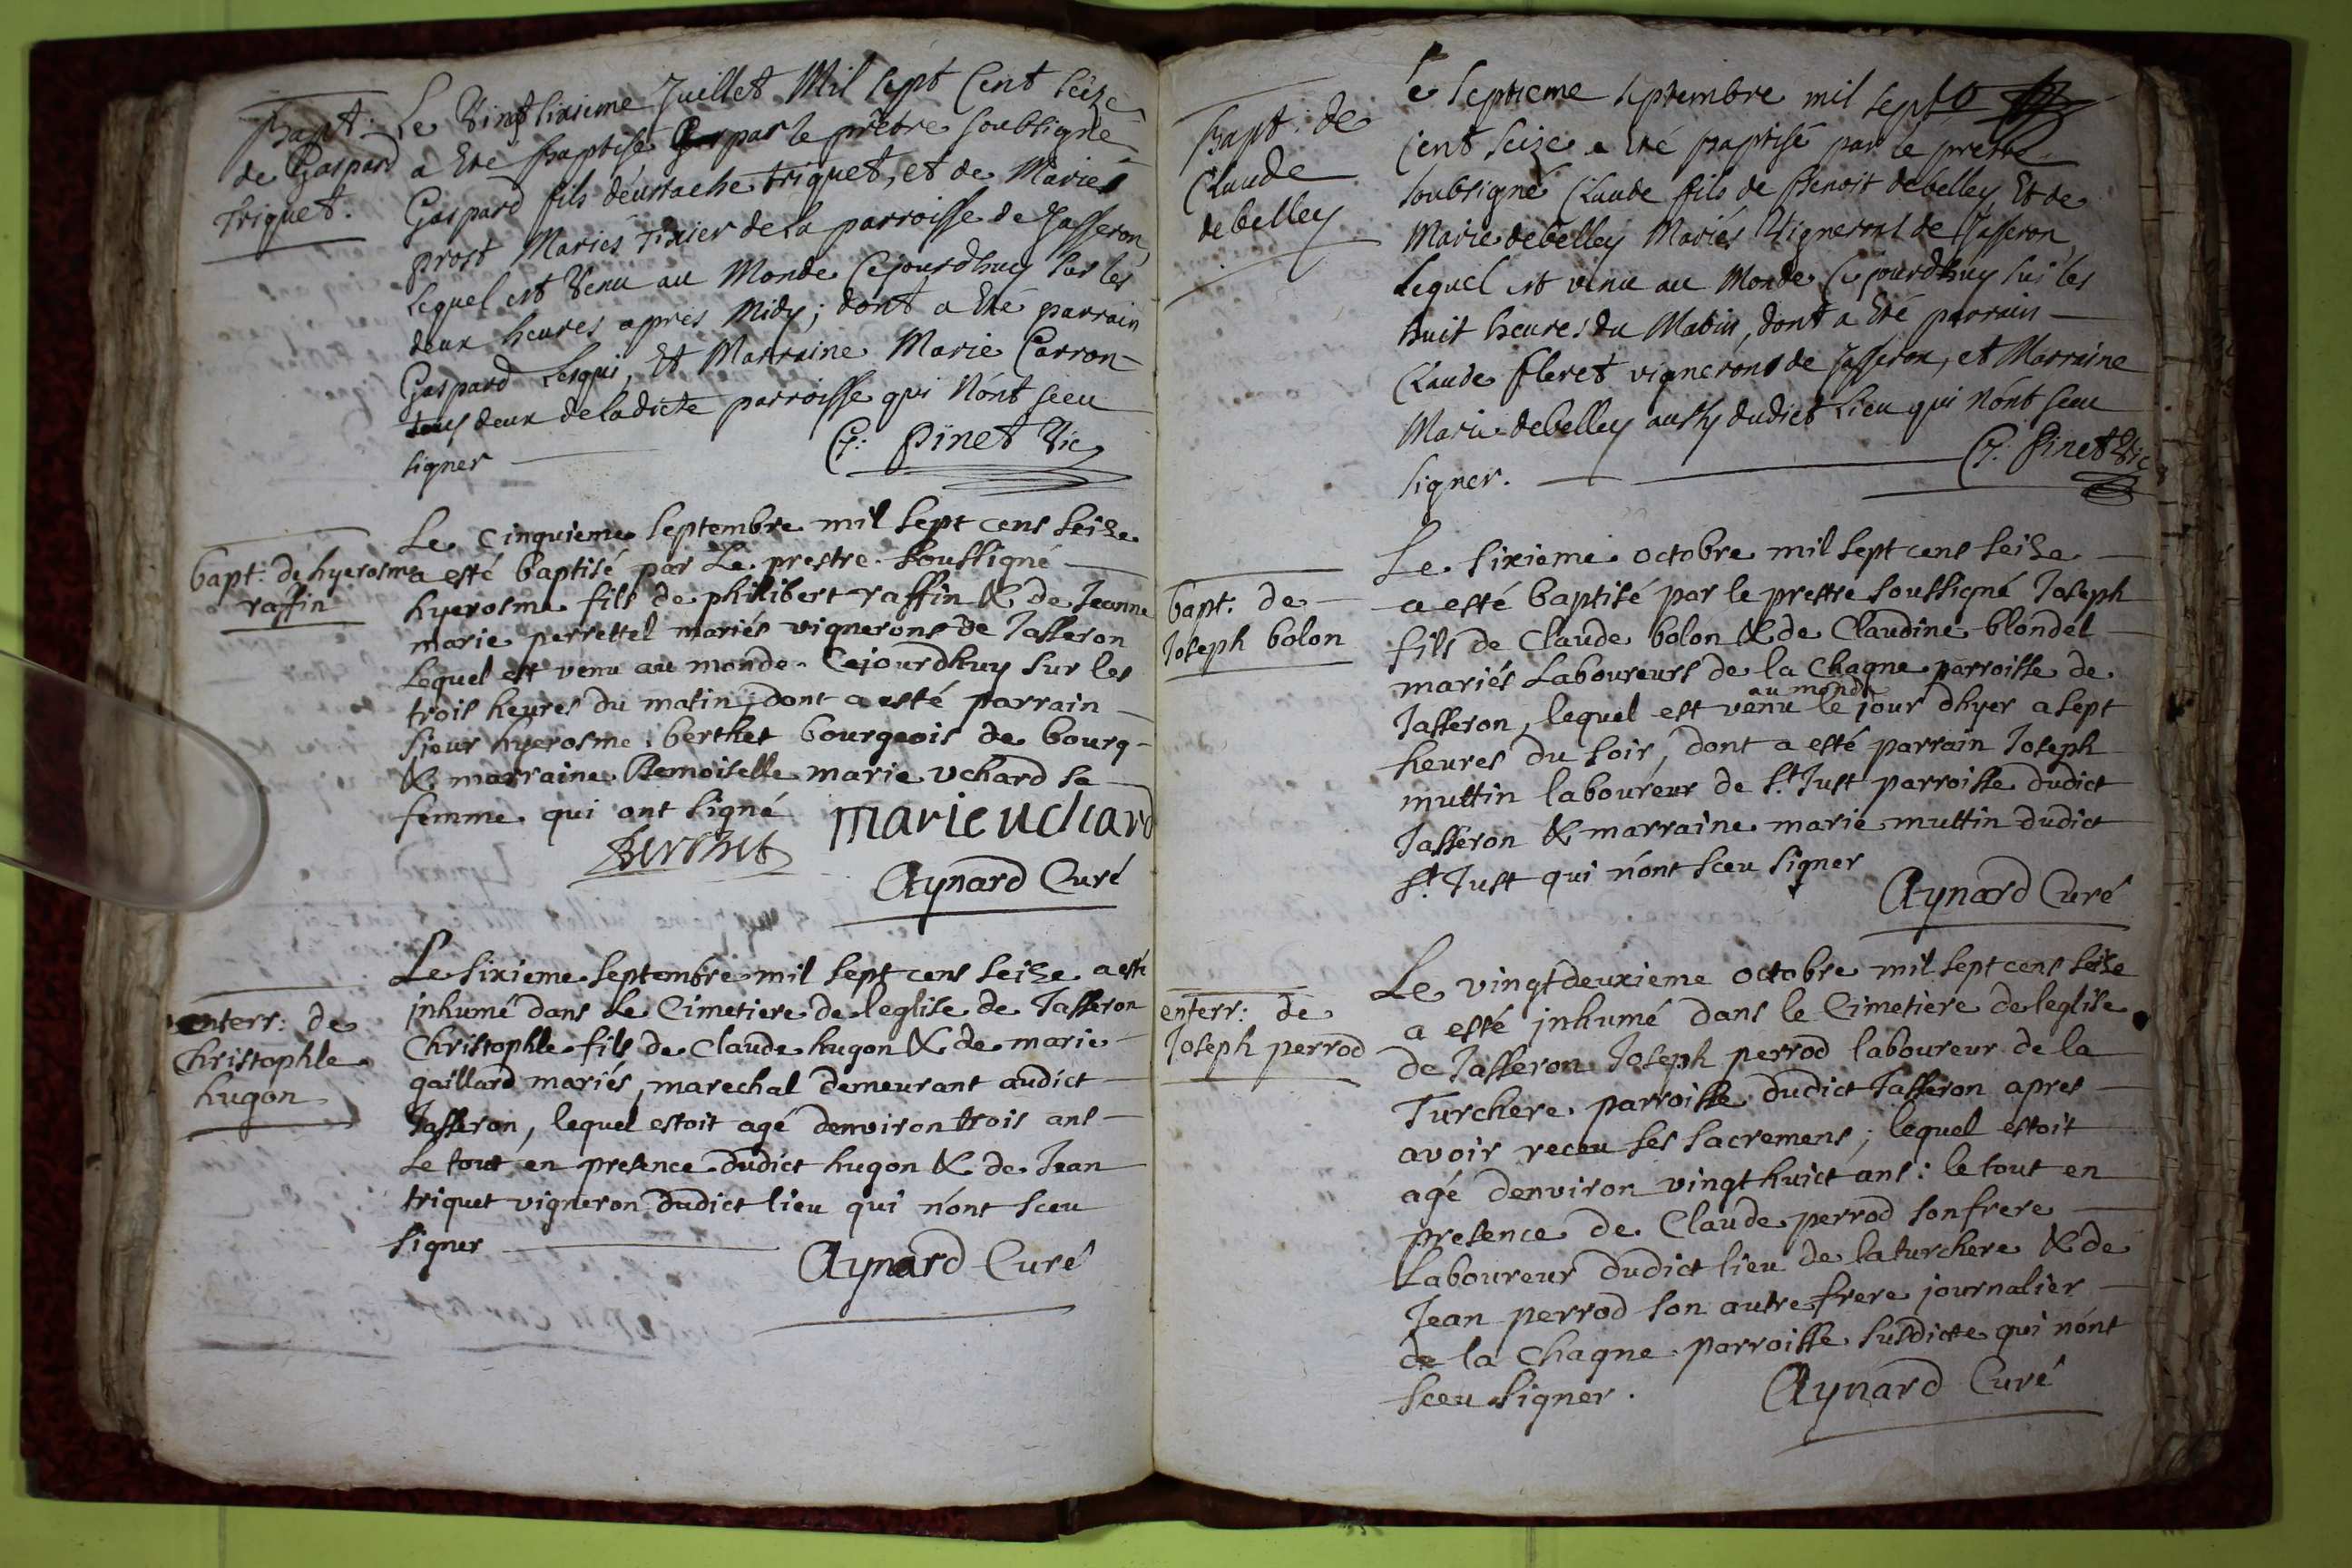 Bapt:
de Gaspard
triquet.
Le Vingtsixieme Juillet Mil sept Cent seize
a Eté baptisé par le prêtre soubsigné
Gaspard fils d'eustache triquet, et de Marie
prost Mariés Tixier de la parroisse de Jasseron,
lequel est Venu au Monde Cejourdhuy sur les
deux heures apres Midy; dont a Eté parrain
Gaspard Lesqui, Et Marraine Marie Carron
tous deux de ladicte parroisse qui N'ont sceu
signer
C: Pinet Vic
bapt: de hyerosme
raffin
Le cinquieme septembre mil sept cens seize
a esté baptisé par Le prestre soussigné
hyerosme fils de philibert raffin & de Jeanne
marie perrettel mariés vignerons de Jasseron
Lequel est venu au monde Cejourdhuy sur les
trois heures du matin; dont a esté parrain
sieur hyerosme berthet bourgeois de bourg
& marraine Demoiselle marie uchard sa
femme qui ont signé
marie uchard
Berthet
Aynard Curé
enterr: de
Christophle
hugon
Le sixieme septembre mil sept cens seize a esté
inhumé dans le Cimetiere de leglise de Jasseron
Christophle fils de Claude hugon & de marie
gaillard mariés, marechal demeurant audict
Jasseron, lequel estoit agé denviron trois ans
le tout en presence dudict hugon & de Jean
triquet vigneron dudict lieu qui n'ont sceu
signer
Aynard Curé
Bapt: de
Claude
debelley
le septieme septembre mil sept
Cent seize a Eté baptisé par le prestre
soubsigné Claude fils de Benoit debelley Et de
Marie debelley Mariés Vignerons de Jasseron,
Lequel est venu au Monde Cejourdhuy sur les
huit heures du Matin, dont a Eté parrain
Claude fleret vignerons de Jasseron, et Marraine
Marie debelley aussy dudict Lieu qui N'ont sceu
signer.
C: Pinet Vic
bapt: de
Joseph bolon
Le sixieme octobre mil sept cens seize
a esté baptisé par le prestre soussigné Joseph
fils de Claude bolon & de Claudine blondel
mariés Laboureurs de la Chagne parroisse de
au monde
Jasseron, lequel est venu le jour dhyer a sept
heures du soir, dont a esté parrain Joseph
muttin laboureur de St. Just parroisse dudict
Jasseron & marraine marie muttin dudict
St. Just qui n'ont sceu signer
Aynard Curé
enterr: de
Joseph perrod
Le vingtdeuxieme octobre mil sept cens seize
a esté inhumé dans le Cimetiere de leglise
de Jasseron Joseph perrod laboureur de la
Turchere parroisse dudict Jasseron apres
avoir receu ses sacremens; lequel estoit
agé denviron vingthuict ans: le tout en
presence de Claude perrod son frere
Laboureur dudict lieu de laturchere & de
Jean perrod son autre frere journalier
de la Chagne parroisse susdicte qui n'ont
sceu signer.
Aynard Curé